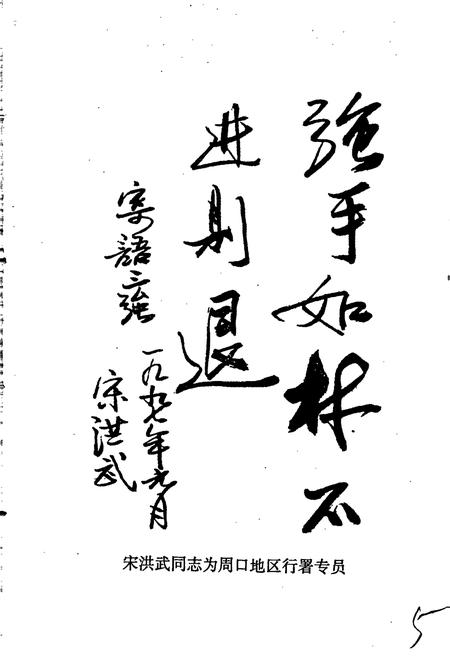 强手如林不
进则退
寄語三强
一九九七年元月
宋洪武
宋洪武同志为周口地区行署专员
5